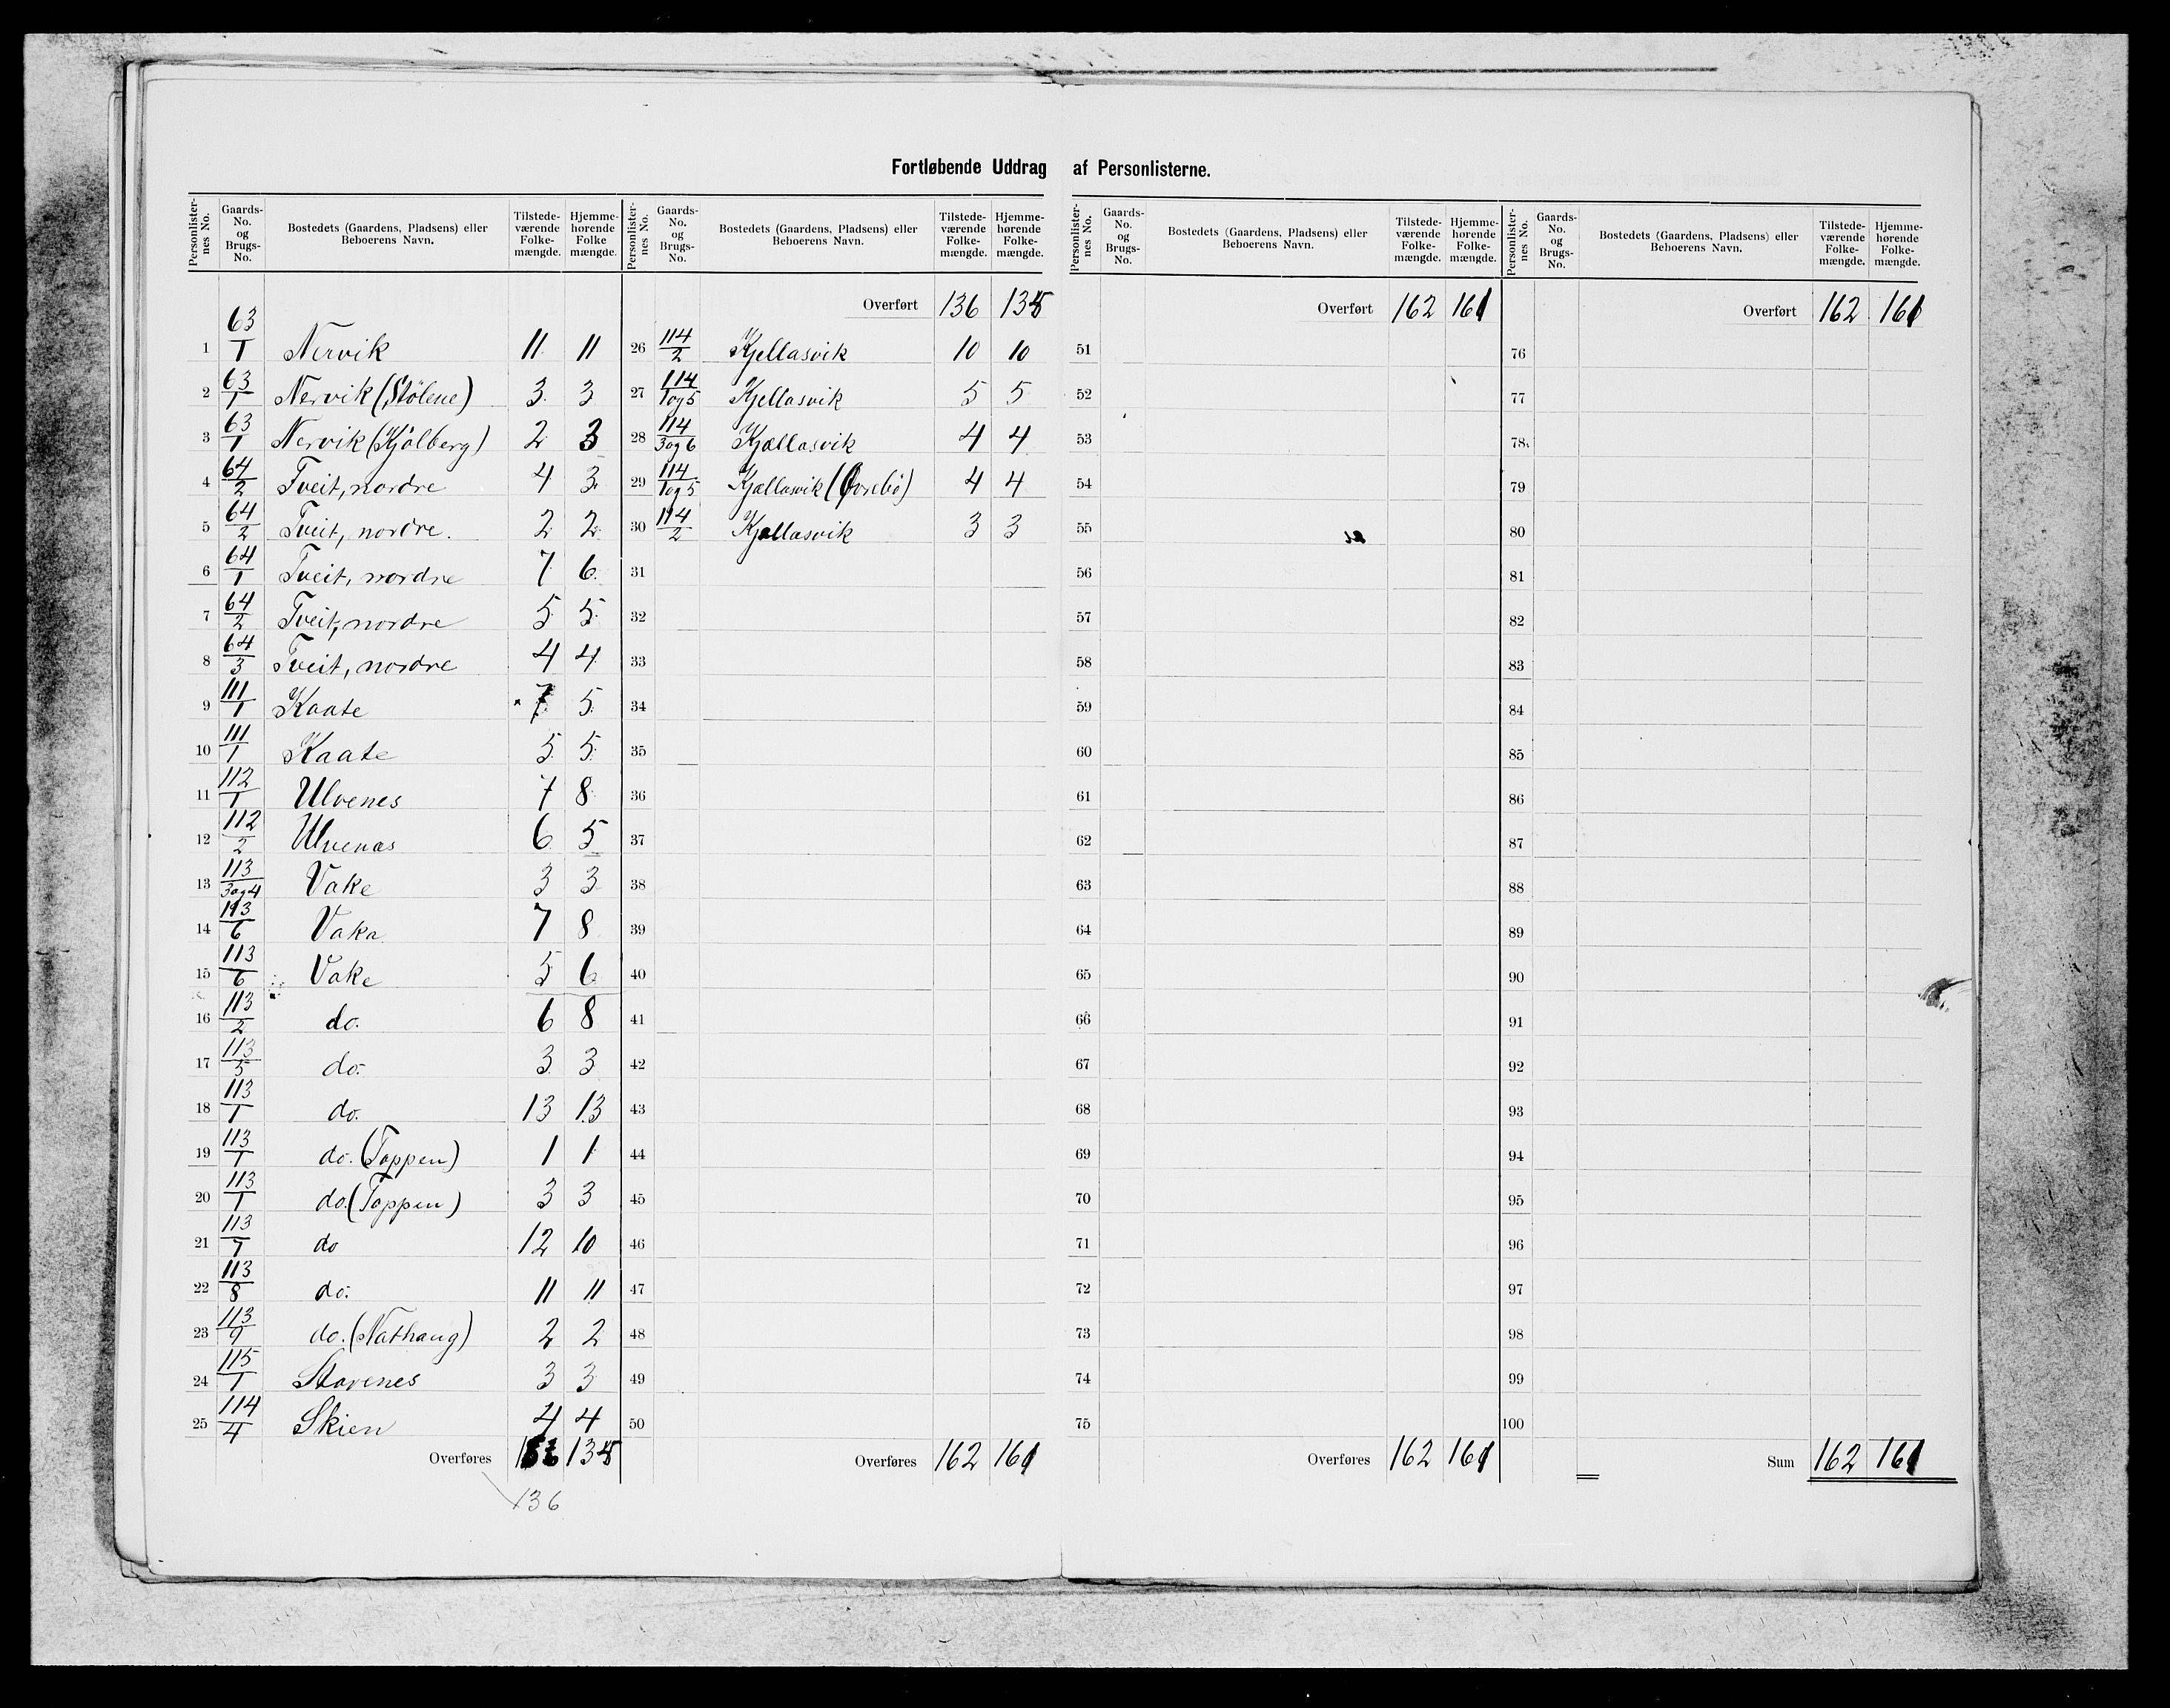 Fortløbende Uddrag af Personlisterne.
Personlisternes No. Gaards-No. og Brugs-No. Bostedets (Gaardens, Pladsens) eller Beboerens Navn. Tilstedeværende Folkemængde. Hjemmehørende Folke mængde.
63/1
1 Nervik 11 11
2 63/1 Nervik (Stölene) 3 3
3 63/1 Nervik (Kjölberg) 2 3
4 64/2 Tveit, nordre 4 3
5 64/2 Tveit, nordre. 2 2
6 64/1 Tveit, nordre 7 6
7 64/2 Tveit, nordre 5 5
8 64/3 Tveit, nordre 4 4
9 111/1 Kaate 7 5
10 111/1 Kaate 5 5
11 112/1 Ulvenes 7 8
12 112/2 Ulvenæs 6 5
13 113/3og4 Vake 3 3
14 113/6 Vaka 7 8
15 113/6 Vake 5 6
16 113/2 do. 6 8
17 113/5 do. 3 3
18 113/1 do. 13 13
19 113/1 do. (Toppen) 1 1
20 113/1 do. (Toppen) 3 3
21 113/7 do 12 10
22 113/8 do. 11 11
23 113/9 do. (Nathaug) 2 2
24 115/1 Stavenes 3 3
25 114/4 Skien 4 4
Overføres 135
136
Personlisternes No. Gaards-No. og Brugs-No. Bostedets (Gaardens, Pladsens) eller Beboerens Navn. Tilstedeværende Folkemængde. Hjemmehørende Folkemængde.
Overført 136 135
26 114/2 Kjellasvik 10 10
27 114/1og5 Kjellasvik 5 5
28 114/3og6 Kjællasvik 4 4
29 114/1og5 Kjællasvik (Övrebö) 4 4
30 114/2 Kjællasvik 3 3
31
32
33
34
35
36
37
38
39
40
41
42
43
44
45
46
47
48
49
50
Overføres 162 161
Personlisternes No. Gaards-No. og Brugs-No. Bostedets (Gaardens, Pladsens) eller Beboerens Navn. Tilstedeværende Folkemængde. Hjemmehørende Folkemængde.
Overført 162 161
51
52
53
54
55
56
57
58
59
60
61
62
63
64
65
66
67
68
69
70
71
72
73
74
75
Overføres 162 161
Personlisternes No. Gaards-No. og Brugs-No. Bostedets (Gaardens, Pladsens) eller Beboerens Navn. Tilstedeværende Folkemængde. Hjemmehørende Folkemængde.
Overført 162 161
76
77
78
79
80
81
82
83
84
85
86
87
88
89
90
91
92
93
94
95
96
97
98
99
100
Sum 162 161